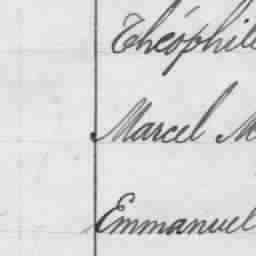 Théophile
Marcel M
Emmanuel